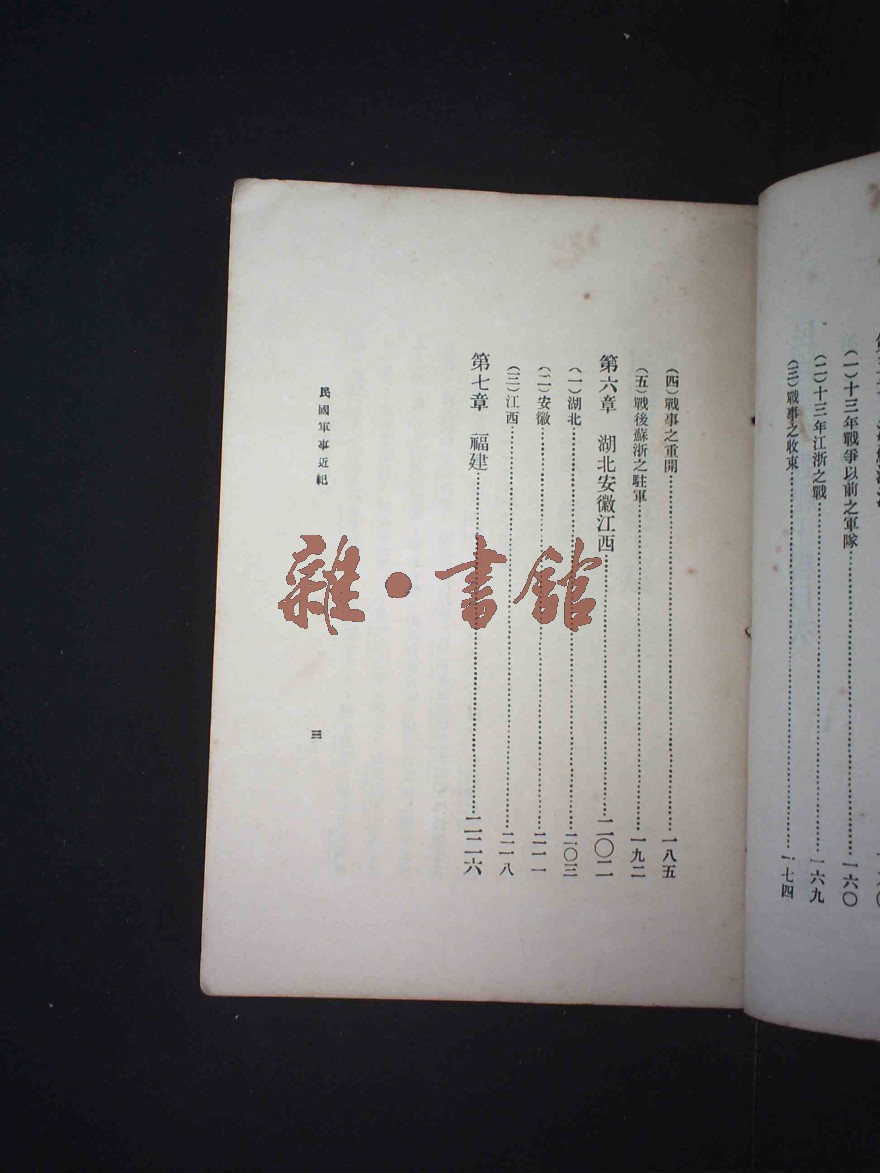 （一）十三年戰爭以前之軍隊……一六〇
（二）十三年江浙之戰……一六九
（三）戰事之收束……一七四
（四）戰事之重開……一八五
（五）戰後蘇浙之駐軍……一九二
第六章　湖北安徽江西……二〇二
（一）湖北……二〇三
（二）安徽……二一一
（三）江西……二一八
第七章　福建……二二六
民國軍事近紀
三
雜·書館